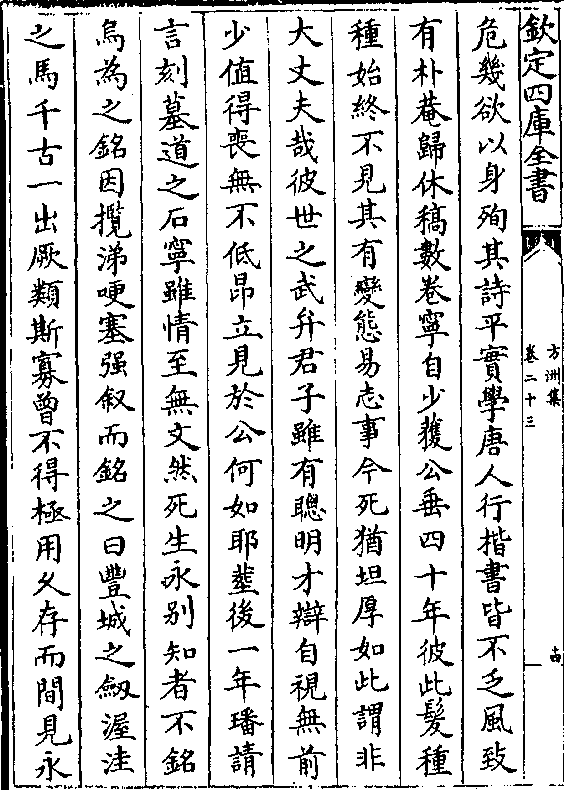 欽定四庫全書
方洲集
卷二十三
十四
危幾欲以身殉其詩平實學唐人行楷書皆不乏風致
有朴菴歸休稿數卷寧自少獲公垂四十年彼此髮種
種始終不見其有變態易志事今死猶坦厚如此謂非
大丈夫哉彼世之武弁君子雖有聰明才辯自視無前
少值得喪無不低昂立見於公何如耶塟後一年璠請
言刻墓道之石寧雖情至無文然死生永别知者不銘
烏為之銘因攬涕哽塞强叙而銘之曰豐城之劒渥洼
之馬千古一出厥類斯寡曾不得極用久存而間見永